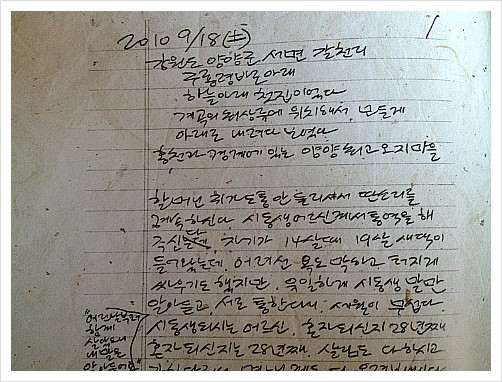 2010 9/18(土)
강원도 양양군 서면 갈천리
구룡령 바로아래
하늘아래 첫집이었다
계곡의 최상류에 위치해서, 난들게
아래로 내려다 보였다
홍천과 경계에 있는 양양 최고오지마을
할머닌 귀가 도통 안 들리셔서 딴소리를
계속 하신다. 시동생 어르신께서 통역을 해
주신다는데, 자기가 14살때 19살 새댁이
들어왔는데, 어려선 욕도 막하고 터지게
싸우기도 했지만, 유일하게 시동생 말만
알아듣고 서로 통한다니. 세월이 무섭다.
시동생되시는 어르신, 혼자되신지 28년째
혼자되신지는 28년째. 살림도 다하시고
"어려살부터
함께
살았으니
내말은
알아들어요"